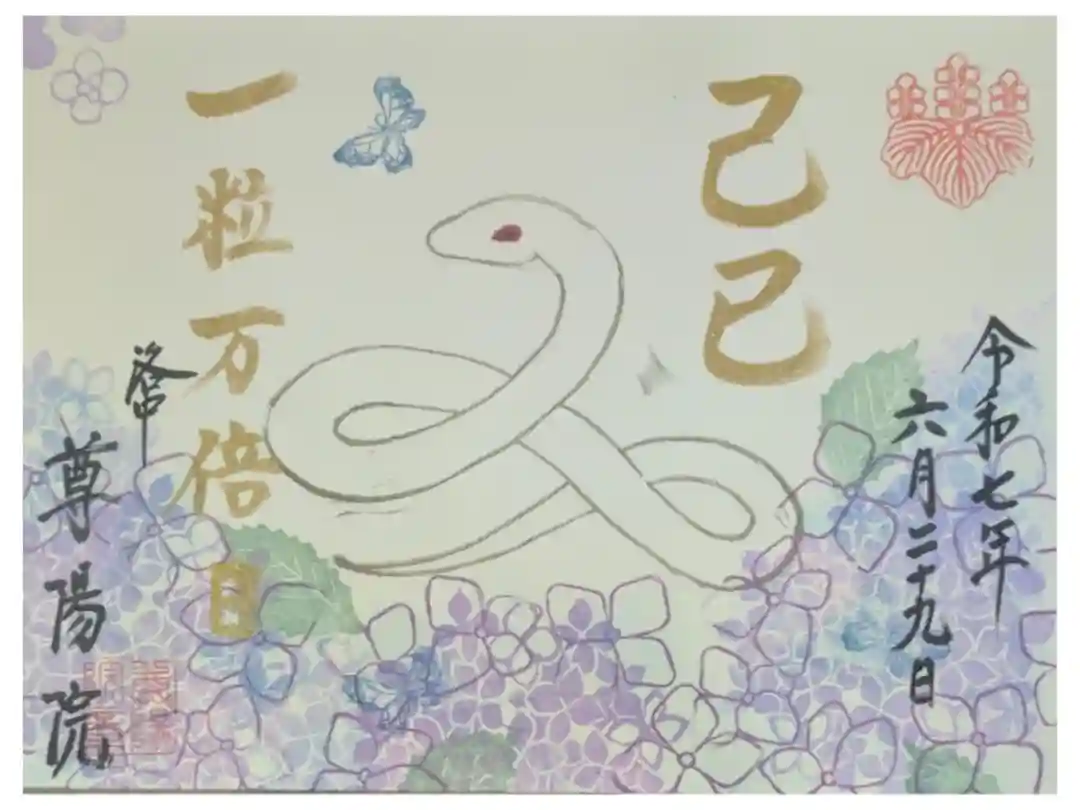 令和七年
六月二十九日
己巳
一粒万倍
日
尊陽院